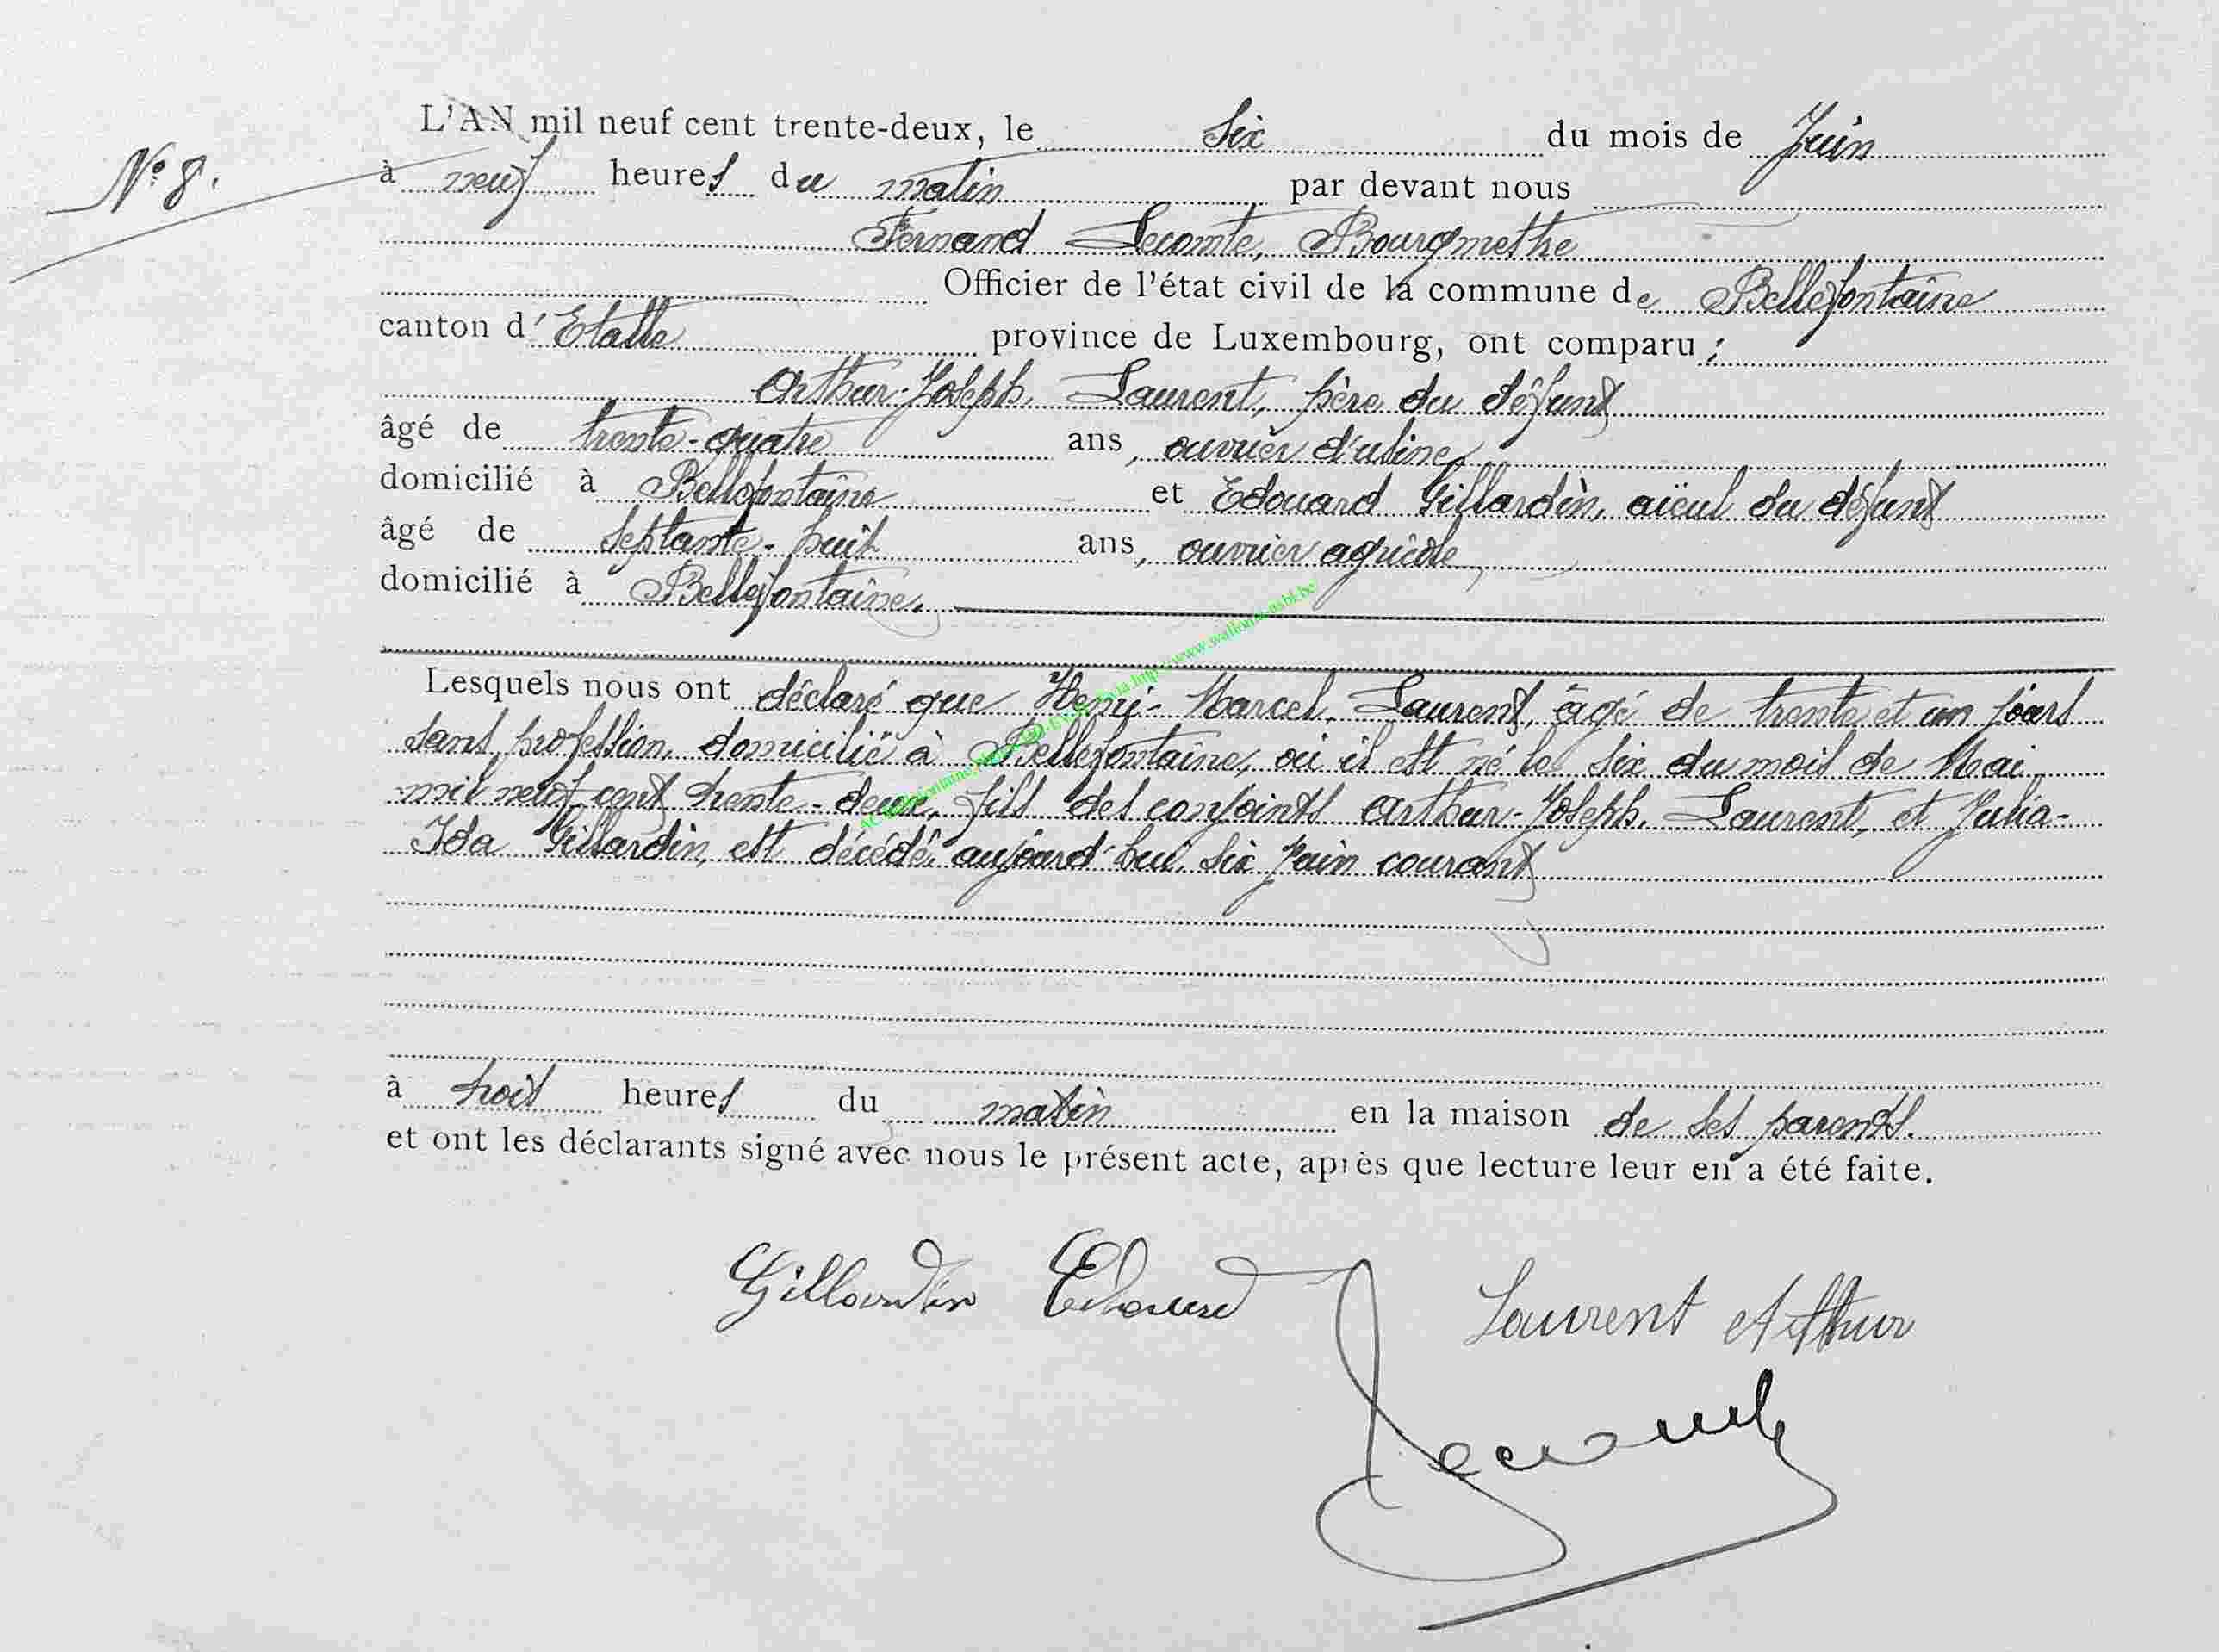 L'AN mil neuf cent trente-deux, le six du mois de Juin
N° 8.
à neuf heures du matin par devant nous
Fernand Lecomte, Bourgmethre
Officier de l'état civil de la commune de Bellefontaine
canton d'Etalle province de Luxembourg, ont comparu :
Arthur-Joseph. Laurent, père du défunt
âgé de trente-quatre ans, ouvrier d'usine,
domicilié à Bellefontaine et Edouard Gillardin, aïeul du défunt
âgé de septante-huit ans, ouvrier agricole,
domicilié à Bellefontaine.
Lesquels nous ont déclaré que Henri-Marcel. Laurent, âgé de trente et un jours
sans profession, domicilié à Bellefontaine, où il est né le six du mois de Mai
mil neuf cent trente-deux, fils des conjoints Arthur-Joseph. Laurent, et Julia-
Ida Gillardin, est décédé, aujourd'hui, six juin courant
à trois heures du matin en la maison de ses parents.
et ont les déclarants signé avec nous le présent acte, après que lecture leur en a été faite.
Gillardin Edouard
Laurent Arthur
Lecomte